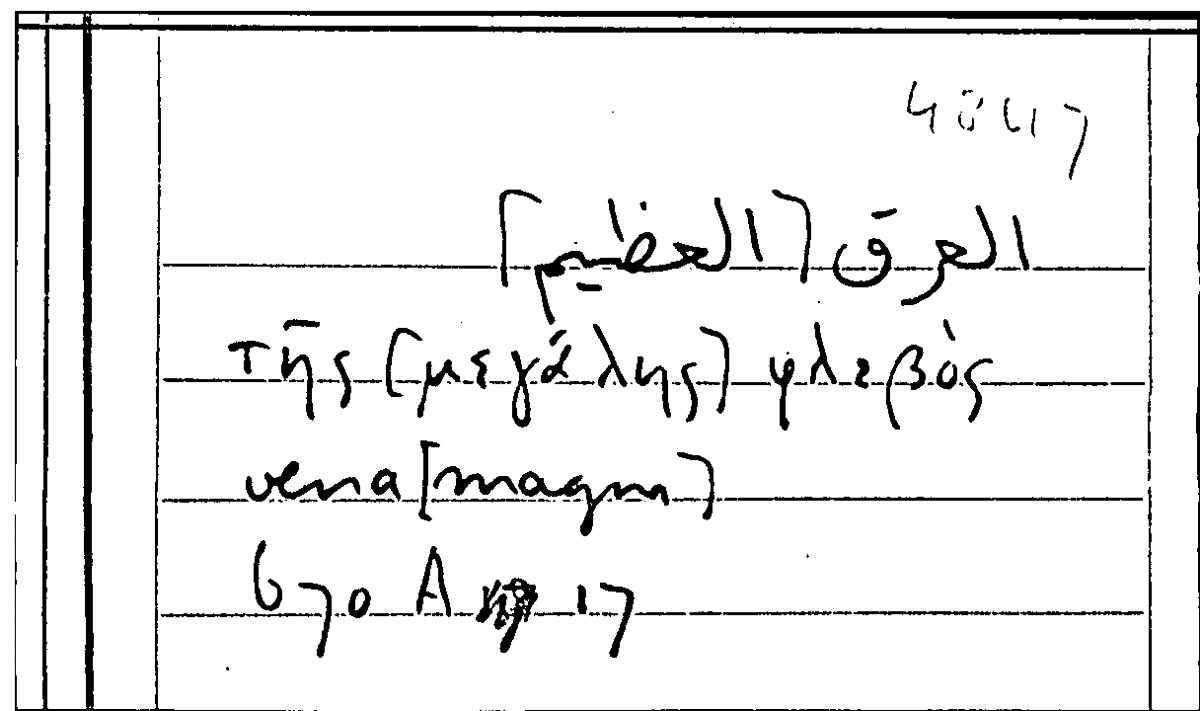 العرق [العظيم]
τῆς [μεγάλης] φλεβός
vena [magna]
670 A 17